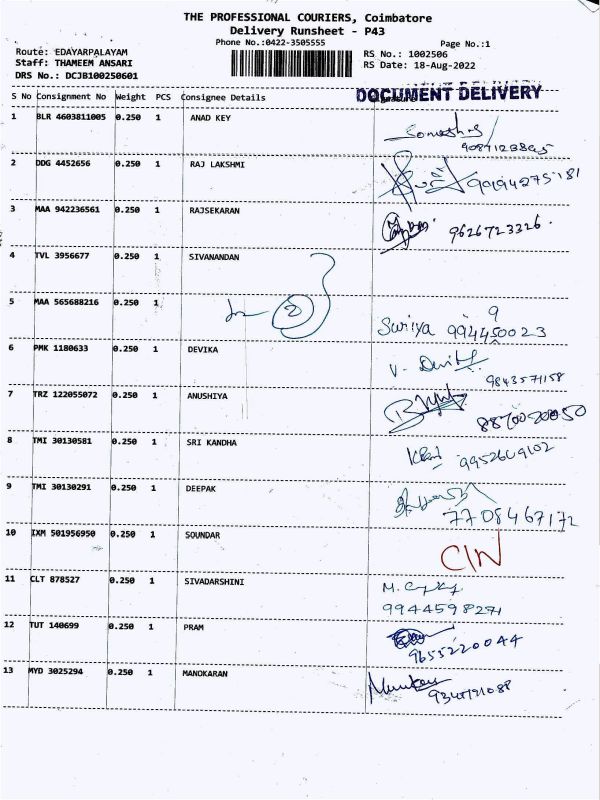 THE PROFESSIONAL COURIERS, Coimbatore
Delivery Runsheet - P43
Phone No.:0422-3505555
Page No.:1
Route: EDAYARPALAYAM
RS No.: 1002506
Staff: THAMEEM ANSARI
RS Date: 18-Aug-2022
DRS No.: DCJB100250601
S No Consignment No Weight PCS Consignee Details
DOCUMENT DELIVERY
1 BLR 4603811005 0.250 1 ANAD KEY
2 DDG 4452656 0.250 1 RAJ LAKSHMI
9994275181
3 MAA 942236561 0.250 1 RAJSEKARAN
9626723326.
4 TVL 3956677 0.250 1 SIVANANDAN
5 MAA 565688216 0.250 1
2
9
Suriya 994450023
6 PMK 1180633 0.250 1 DEVIKA
9843571158
7 TRZ 122055072 0.250 1 ANUSHIYA
8870020050
8 TMI 30130581 0.250 1 SRI KANDHA
9952609102
9 TMI 30130291 0.250 1 DEEPAK
7708467172
10 IXM 501956950 0.250 1 SOUNDAR
CIN
11 CLT 878527 0.250 1 SIVADARSHINI
9944598271
12 TUT 140699 0.250 1 PRAM
9655220044
13 MYD 3025294 0.250 1 MANOKARAN